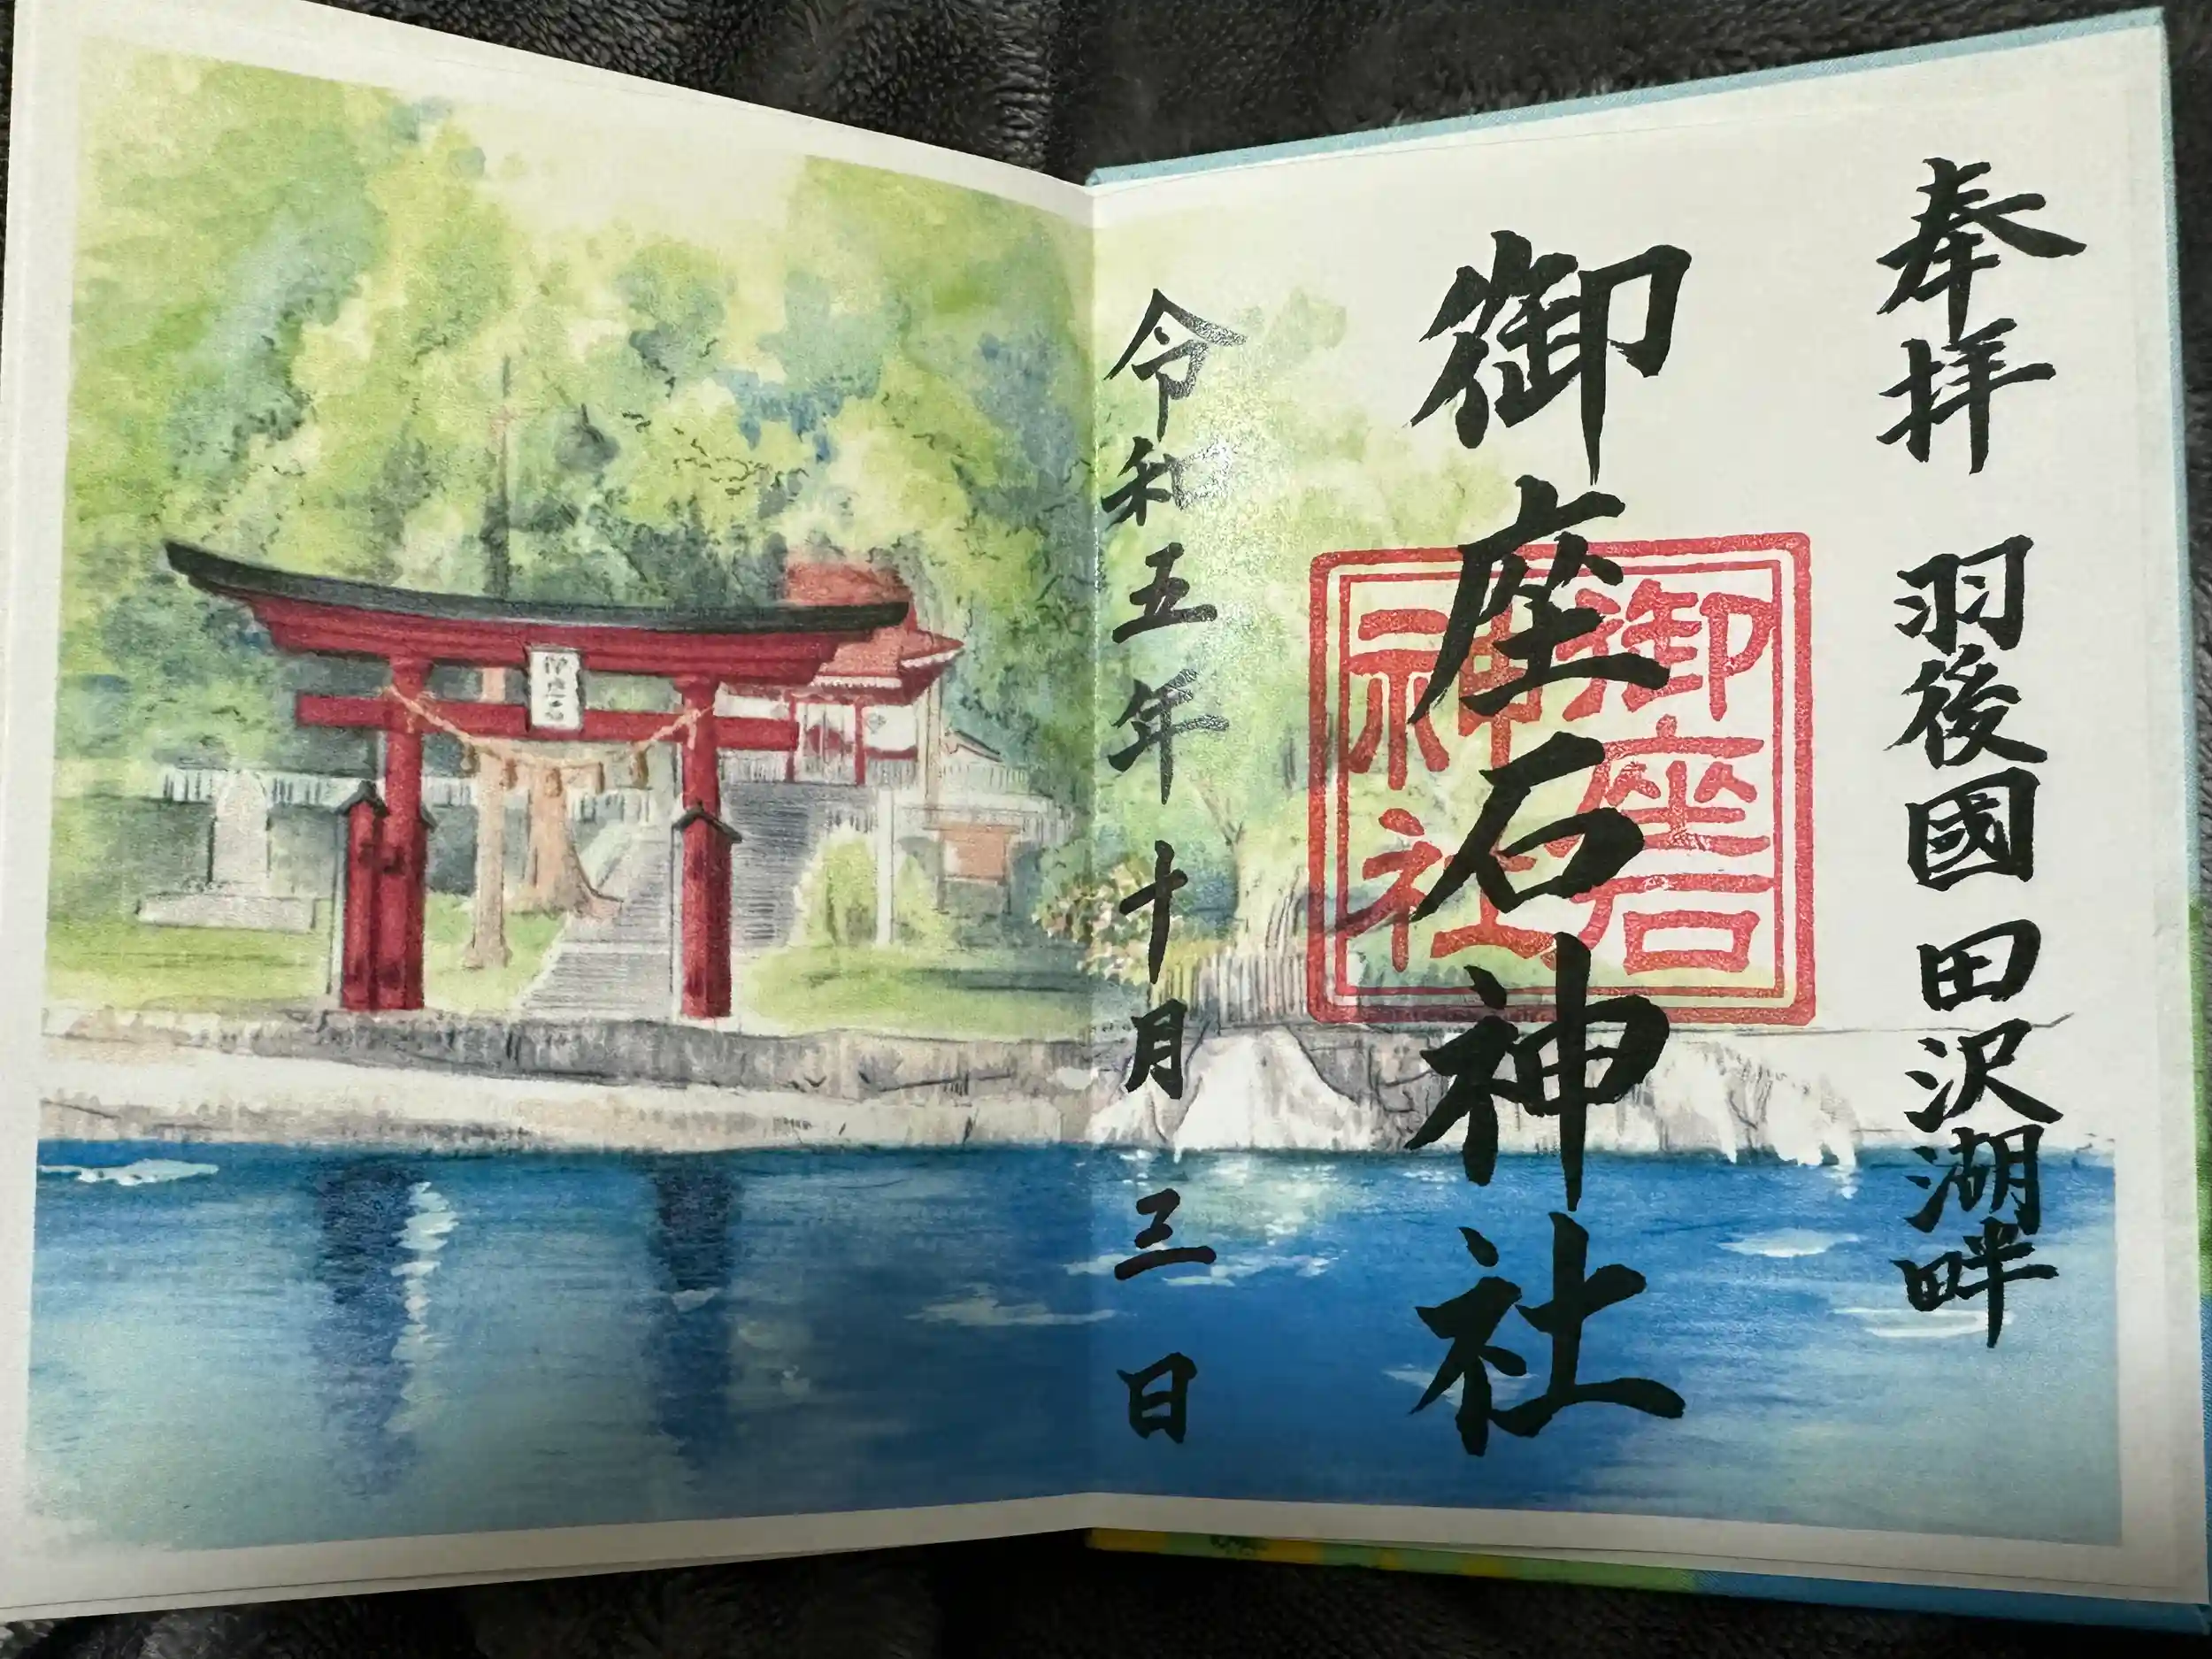 奉拝 羽後國 田沢湖畔
御座石神社
御座石
神社
令和五年 十月 三日